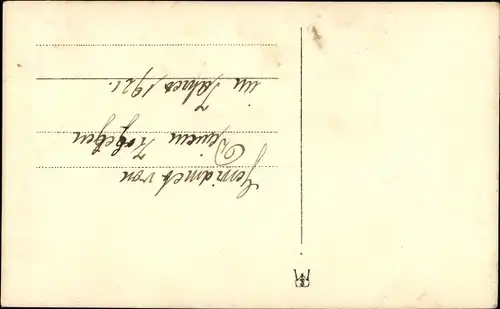 Gewidmet von
Deinem Kollegen
im Jahre 1921.